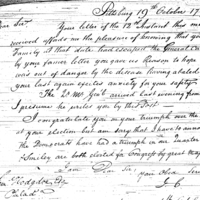 Pittsburg 19th October 17
Dear Sir
Your letter of the 12th Instant this mom
received Made me the pleasure of knowing that your
Family at that date had escaped the General
by your former letter you gave us Reason to hope
was out of danger by the disease having
your last again excites anxiety for your safety
The D. Mr Genl arrived last evening from
I presume he writes you by this Post
I congratulate you on your triumph over the
at your election but am sorry that I have to announce
the Democrats have had a triumph in our quarter
& Smiley are both elected for Congress by great Maj
I am Dear Sir your Obed Serv
Hodgdon Esq
Philad